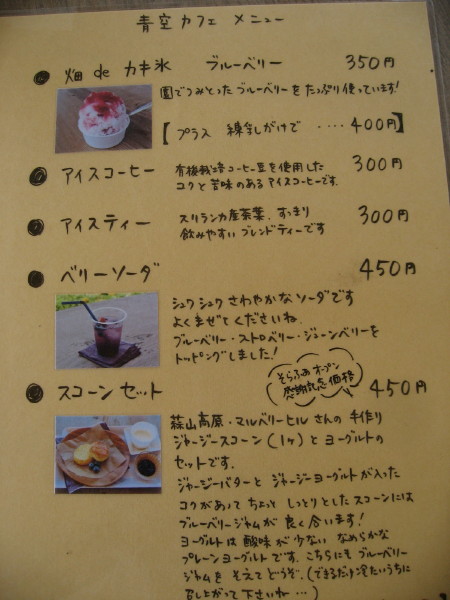 青空カフェ メニュー
畑 de カキ氷 ブルーベリー 350円
園でつみとった ブルーベリーを たっぷり使っています!
【プラス 練乳がけで ‥‥400円】
アイスコーヒー 有機栽培コーヒー豆を使用した 300円
コクと苦味のある アイスコーヒーです。
アイスティー スリランカ産茶葉、すっきり 300円
飲みやすい ブレンドティーです
ベリーソーダ 450円
シュワシュワ さわやかなソーダです
よくまぜてくださいね。
ブルーベリー・ストロベリー・ジューンベリーを
トッピングしました!
そらふぁオープン
感謝記念価格
スコーンセット 450円
蒜山高原・マルベリーヒルさんの手作り
ジャージースコーン(1ヶ)とヨーグルトの
セットです。
ジャージーバターとジャージーヨーグルトが入った
コクがあって ちょっと しっとりとしたスコーンには
ブルーベリージャムが 良く合います!
ヨーグルトは 酸味が少ない なめらかな
プレーンヨーグルトです。こちらにも ブルーベリー
ジャムを そえてどうぞ。(できるだけ冷たいうちに
召し上がって下さいね…)